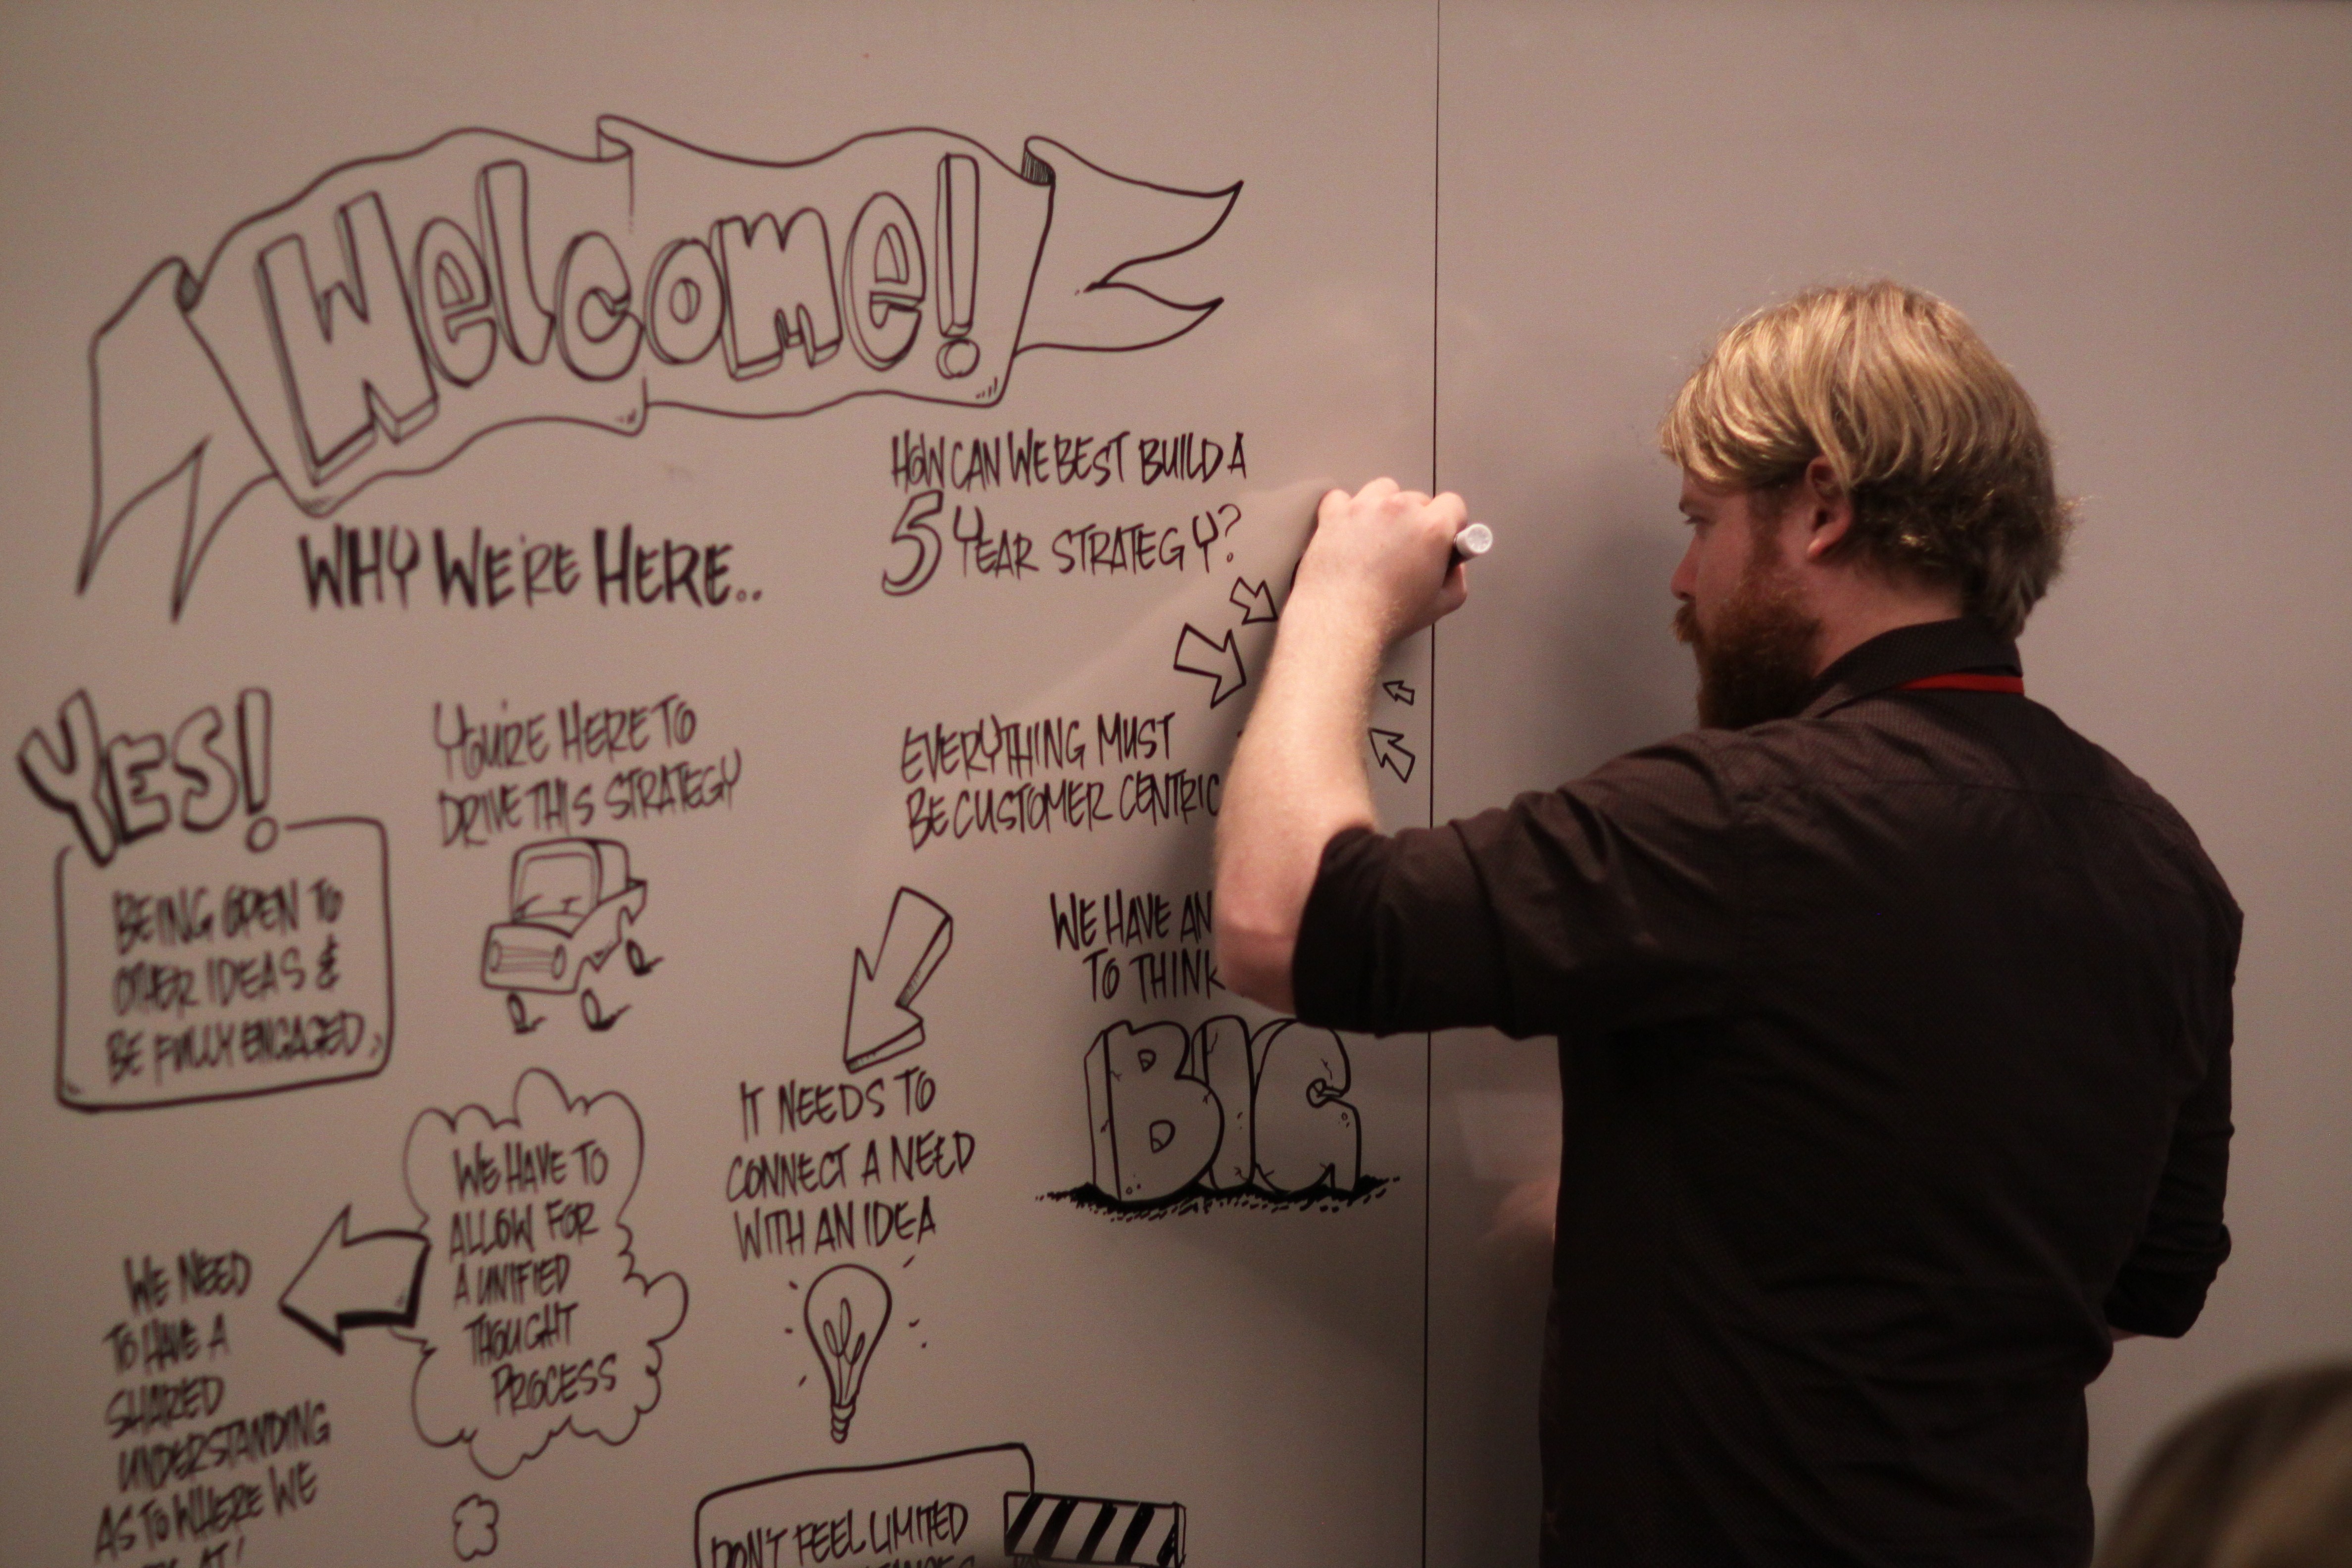 Welcome!
WHY WE'RE HERE..
HOW CAN WE BEST BUILD A
5 YEAR STRATEGY?
YES!
BEING OPEN TO
OTHER IDEAS &
BE FULLY ENGAGED
YOU'RE HERE TO
DRIVE THIS STRATEGY
EVERYTHING MUST
BE CUSTOMER CENTRIC
WE HAVE AN
TO THINK
BIG
IT NEEDS TO
CONNECT A NEED
WITH AN IDEA
WE HAVE TO
ALLOW FOR
A UNIFIED
THOUGHT
PROCESS
WE NEED
TO HAVE A
SHARED
UNDERSTANDING
AS TO WHERE WE
AT!
DON'T FEEL LIMITED